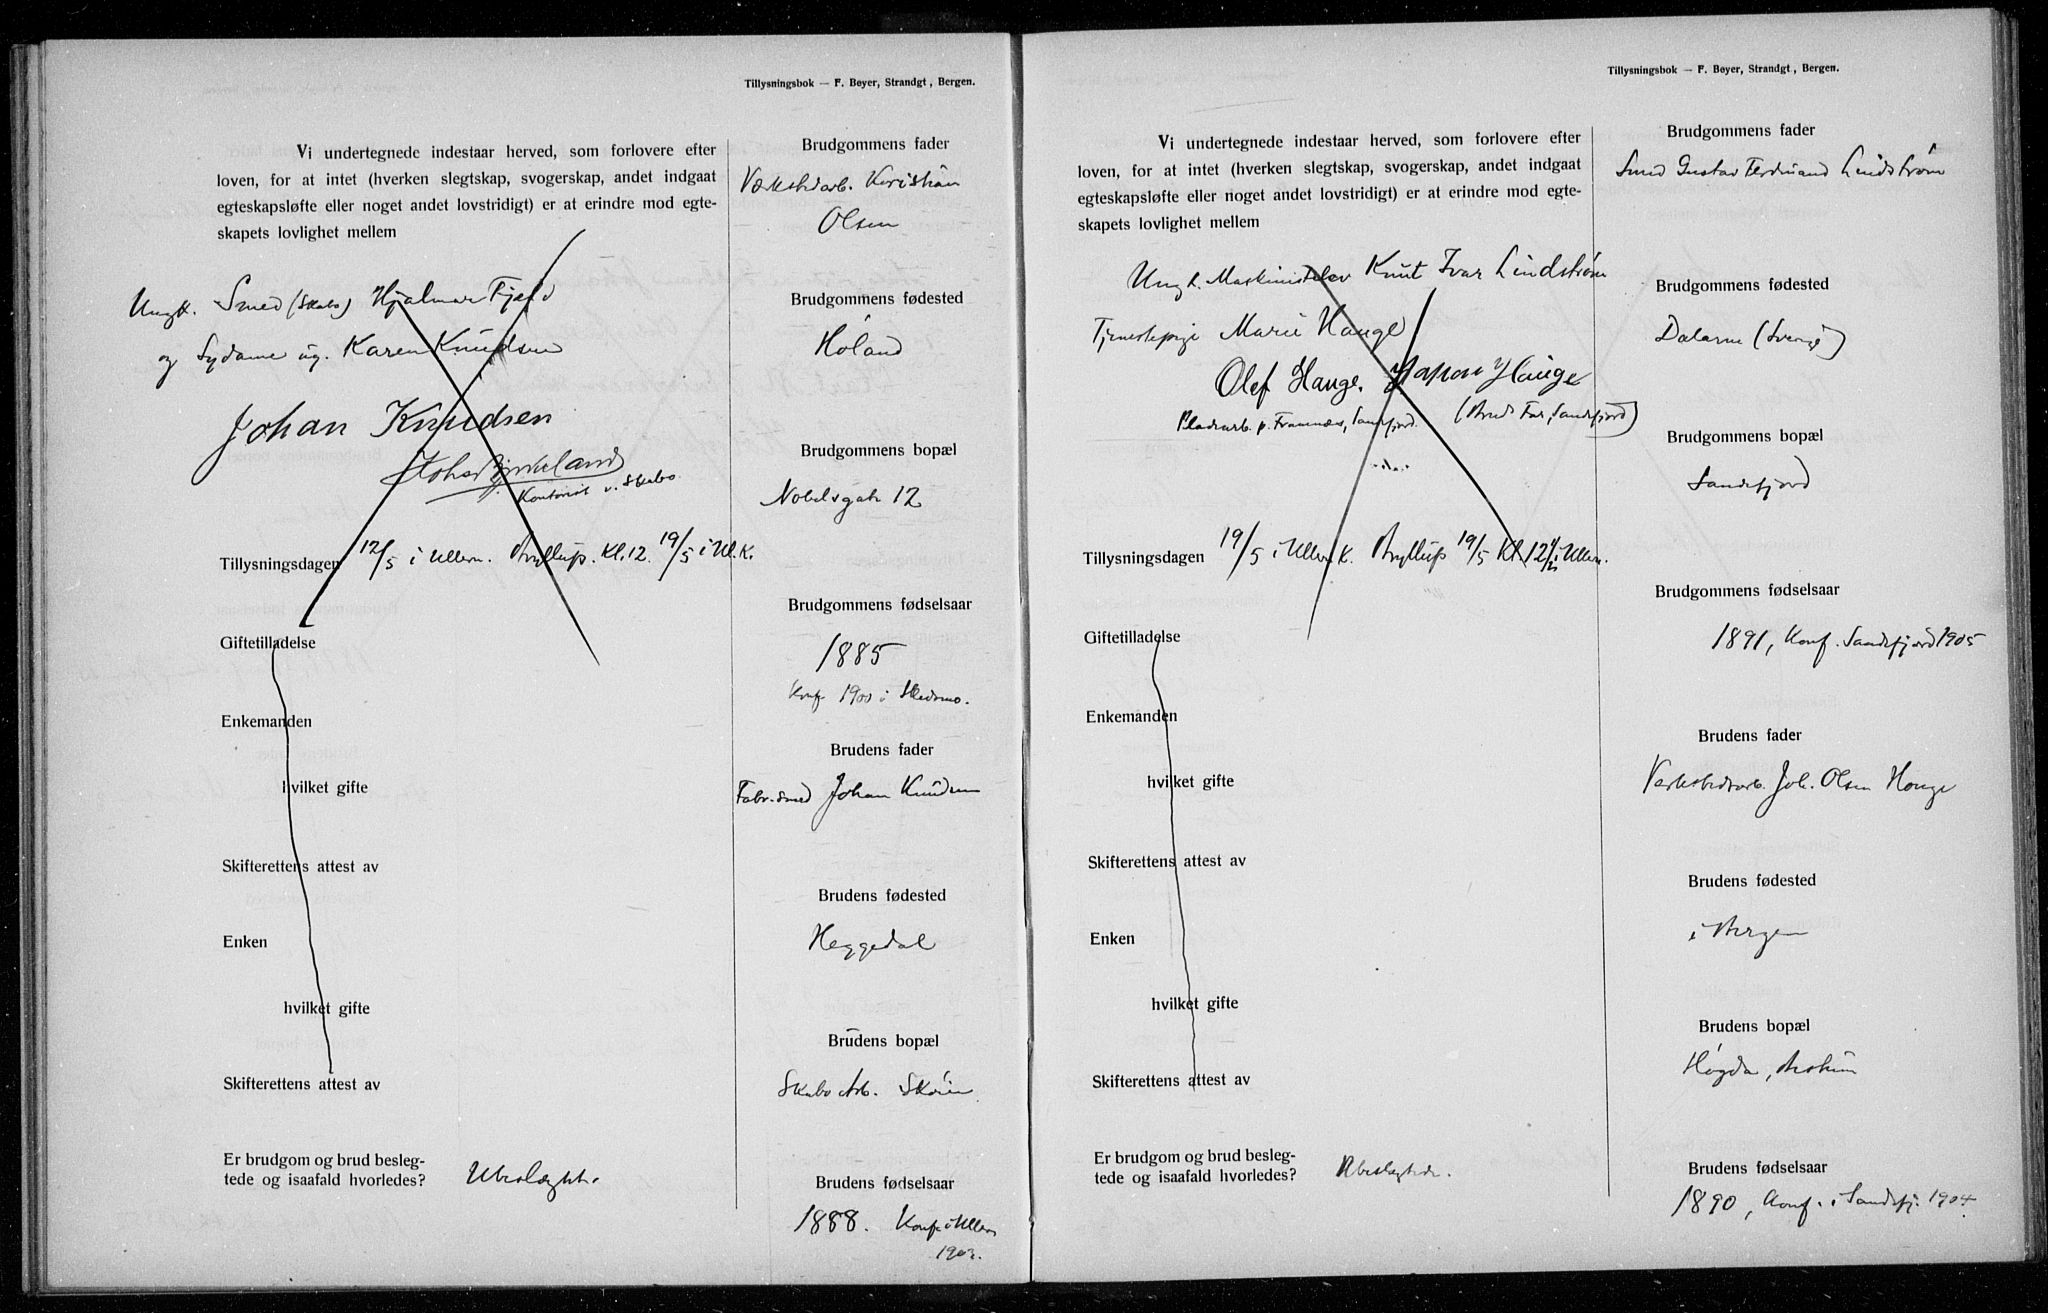 Tillysningsbok — F. Beyer, Strandgt , Bergen.
Vi undertegnede indestaar herved, som forlovere efter
loven, for at intet (hverken slegtskap, svogerskap, andet indgaat
egteskapsløfte eller noget andet lovstridigt) er at erindre mod egte-
skapets lovlighet mellem
Ungk. Smed (Skabo) Hjalmar Fjeld
og Sydame ug. Karen Knudsen
Johan Knudsen
Birkeland
Kontorist v. Skabo.
Tillysningsdagen 12/5 i Ullern. Bryllup. Kl. 12. 19/5 i Ul. K.
Giftetilladelse
Enkemanden
hvilket gifte
Skifterettens attest av
Enken
hvilket gifte
Skifterettens attest av
Er brudgom og brud besleg-
tede og isaafald hvorledes? Ubeslægtet.
Brudgommens fader
Verkstedarb. Kristian
Olsen
Brudgommens fødested
Høland
Brudgommens bopæl
Nobelsgate 12
Brudgommens fødselsaar
1885
Konf. 1900 i Skedsmo.
Brudens fader
Fabr.smed Johan Knudsen
Brudens fødested
Heggedal
Brudens bopæl
Skabo Arb. Skøien
Brudens fødselsaar
1888. Konf. i Ullern
1902.
Tillysningsbok — F. Beyer, Strandgt , Bergen.
Vi undertegnede indestaar herved, som forlovere efter
loven, for at intet (hverken slegtskap, svogerskap, andet indgaat
egteskapsløfte eller noget andet lovstridigt) er at erindre mod egte-
skapets lovlighet mellem
Ungk. Maskinistelev Knut Ivar Lindstrøm
Tjenestepige Marie Hauge
Olef Hauge. Hakon Hauge
Pladearb. p. Framnæs, Sandefjord. (Bruds Far, Sandefjord)
Tillysningsdagen 19/5 i Ullern K. Bryllup 19/5 Kl. 12 1/2 i Ullern.
Giftetilladelse
Enkemanden
hvilket gifte
Skifterettens attest av
Enken
hvilket gifte
Skifterettens attest av
Er brudgom og brud besleg-
tede og isaafald hvorledes? Ubeslægtede.
Brudgommens fader
Smed Gustav Ferdinand Lindstrøm
Brudgommens fødested
Dalarne (Sverige)
Brudgommens bopæl
Sandefjord
Brudgommens fødselsaar
1891, Konf. Sandefjord 1905
Brudens fader
Verkstedsarb. Joh. Olsen Hauge
Brudens fødested
i Bergen
Brudens bopæl
Høgda, Bestum
Brudens fødselsaar
1890, Konf. i Sandefj. 1904.